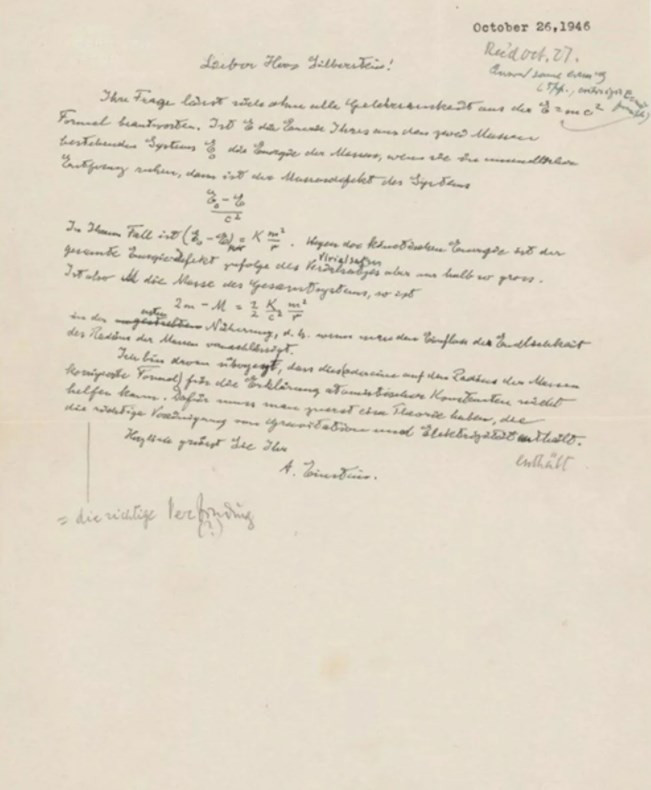 October 26,1946
Rec'd oct. 27.
Lieber Herr Silberstein!
Ihre Frage lässt sich ohne alle Gelehrsamkeit aus der E = mc²
Formel beantworten. Ist E die Energie Ihres aus den zwei Massen
bestehenden Systems E₀ die Energie der Massen, wenn sie in unendlicher
Entfernung ruhen, dann ist der Massendefekt des Systems
E₀ - E
c²
In Ihrem Fall ist (E₀ - E) = K m²/r . Wegen der kinetischen Energie ist der
Virialsatzes
gesamte Energiedefekt zufolge des aber nur halb so gross.
Ist also M die Masse des Gesamtsystems, so ist
2m - M = ½ K/c² m²/r
in der ersten Näherung, d. h. wenn man den Einfluss der Endlichkeit
des Radius der Massen vernachlässigt.
Ich bin davon überzeugt, dass die(oder eine auf den Radius der Massen
korrigierte Formel) für die Erklärung atomistischer Konstanten nicht
helfen kann. Dafür muss man zuerst eine Theorie haben, die
die richtige Vereinigung von Gravitation und Elektrizität enthält.
Herzlich grüsst Sie Ihr
enthält
A. Einstein.
= die richtige Verbindung
(?)